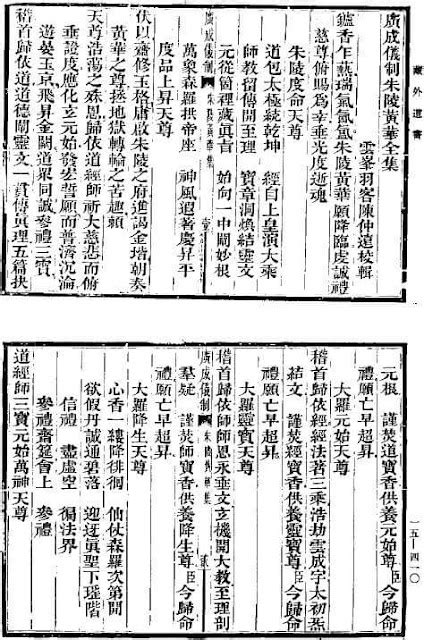 藏外道書
廣成儀制朱陵黃華全集
雲峯羽客陳仲遠校輯
鑪香乍爇瑞氣氤氳朱陵黃華願降臨虔誠禮
慈尊俯賜為幸垂光度逝魂
朱陵度命天尊
道包太極統乾坤 經自上皇演大乘
師教留傳開至理 寶章洞煥結靈文
元從箇裡藏真吉 始向一中闡妙根
廣成儀制 朱陵黃華集 壹
萬象森羅拱帝座 神風遐著慶昇平
度品上昇天尊
伏以齋修玉格庸啟朱陵之府進謁金堦朝奏
黃華之尊拯地獄轉輪之苦趣賴
天尊浩蕩之殊恩歸依道經師祈大慈悲而俯
垂證度應化玄元始發宏誓願而普濟沉淪
遊晏玉京飛昇金闕道眾同誠參禮三寶
稽首歸依道道德闡靈文一貫傳真理五篇抉
元根 謹焚道寶香供養元始尊臣今歸命
禮願亡早超昇
大羅元始天尊
稽首歸依經經法著三乘浩劫雲成字太初炁
結文 謹焚經寶香供養靈寶尊臣今歸命
禮願亡早超昇
大羅靈寶天尊
稽首歸依師師恩永垂文玄機開大教至理剖
廣成儀制 朱陵黃華集 貳
羣疑 謹焚師寶香供養降生尊臣今歸命
禮願亡早超昇
大羅降生天尊
心香一縷降徘徊 仙仗森羅次第開
欲假丹誠通碧落 迎迓真聖下瑤階
信禮 盡虛空 徧法界
參禮齋筵會上 參禮
道經師三寶元始萬神天尊
一五—四一〇